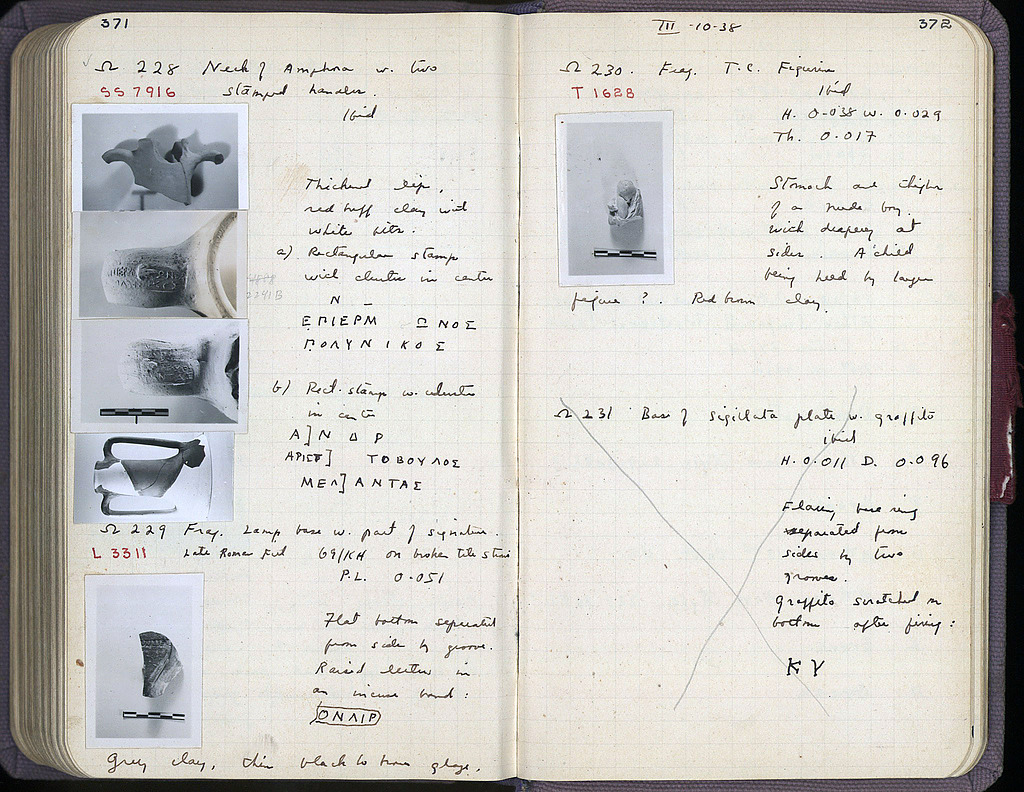 371
Ω 228 Neck of Amphora w. two
SS 7916 stamped handles.
Ibid
Thickened lip,
red buff clay with
white bits.
a) Rectangular stamp
with cluster in center
2291B
N _
ΕΠΙΕΡΜ Ω ΝΟΣ
ΠΟΛΥΝΙΚΟΣ
b) Rect. stamp w. cluster
in center
Α]Ν Δ Ρ
ΑΡΙΣΤ] ΤΟΒΟΥΛΟΣ
ΜΕΛ]ΑΝΤΑΣ
Ω 229 Frag. Lamp base w. part of signature.
L 3311 Late Roman Fill 69/ΚΗ on broken tile
P.L. 0.051
Flat bottom separated
from side by groove.
Raised letters in
an incuse band:
ONΛIP
Grey clay, thin black to brown glaze.
III -10-38
372
Ω 230. Frag. T.C. Figurine
T 1628 Ibid
H. 0.038 W. 0.029
Th. 0.017
Stomach and thighs
of a nude boy.
with drapery at
sides. A child
being held by larger
figure ?. Red brown clay.
Ω 231 Base of sigillata plate w. graffito
ibid
H. 0.011 D. 0.096
Flaring base ring
separated from
sides by two
grooves.
Graffito scratched on
bottom after firing:
Κ Υ